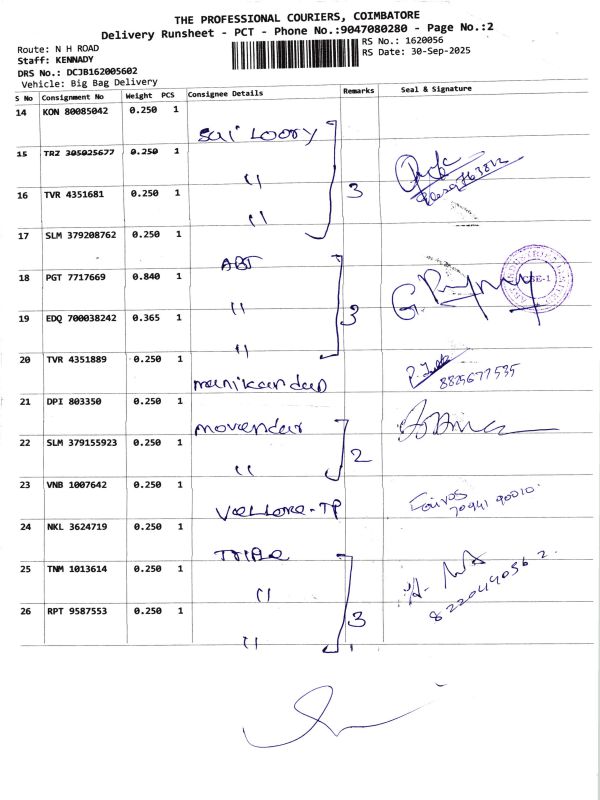 THE PROFESSIONAL COURIERS, COIMBATORE
Delivery Runsheet - PCT - Phone No.:9047080280 - Page No.:2
Route: N H ROAD
RS No.: 1620056
Staff: KENNADY
RS Date: 30-Sep-2025
DRS No.: DCJB162005602
Vehicle: Big Bag Delivery
S No Consignment No Weight PCS Consignee Details Remarks Seal & Signature
14 KON 80085042 0.250 1
Sai Loory
15 TRZ 305925677 0.250 1
"
16 TVR 4351681 0.250 1 3
"
17 SLM 379208762 0.250 1
ABT
18 PGT 7717669 0.840 1
"
19 EDQ 700038242 0.365 1 3
"
20 TVR 4351889 0.250 1
manikandan 8825677535
21 DPI 803350 0.250 1
movendar
22 SLM 379155923 0.250 1 2
"
23 VNB 1007642 0.250 1
Vellore-TP 70941 90010
24 NKL 3624719 0.250 1
Triple
25 TNM 1013614 0.250 1
" 8220490562
26 RPT 9587553 0.250 1 3
"